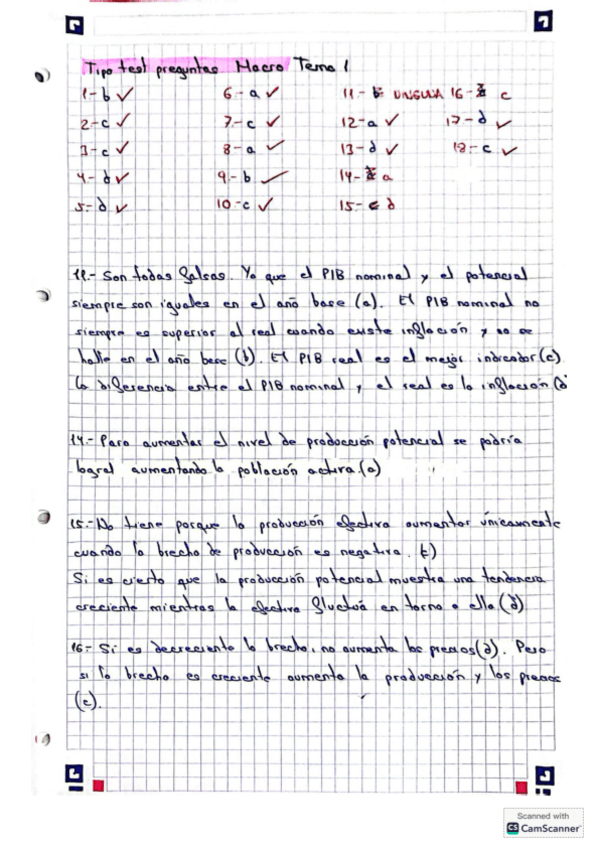 Tipo test preguntas Macro Tema 1
1-b ✓ 6-a ✓ 11-b NINGUNA 16- c
2-c ✓ 7-c ✓ 12-a ✓ 17-d ✓
3-c ✓ 8-a ✓ 13-d ✓ 18-c ✓
4-d ✓ 9-b ✓ 14- a
5-d ✓ 10-c ✓ 15-c d
11.- Son todas falsas. Ya que el PIB nominal y el potencial
siempre son iguales en el año base (a). El PIB nominal no
siempre es superior al real cuando existe inflación y no se
halle en el año base (b). El PIB real es el mejor indicador (c)
la diferencia entre el PIB nominal y el real es la inflación (d
14.- Para aumentar el nivel de producción potencial se podría
logral aumentando la población activa. (a)
15.- No tiene porque la producción efectiva aumentar únicamente
cuando la brecha de producción es negativa. (c)
Si es cierto que la producción potencial muestra una tendencia
creciente mientras la efectiva fluctúa en torno a ella (d)
16.- Si es decreciente la brecha, no aumenta los precios (d). Pero
si la brecha es creciente aumenta la producción y los precios
(c).
Scanned with
CS CamScanner